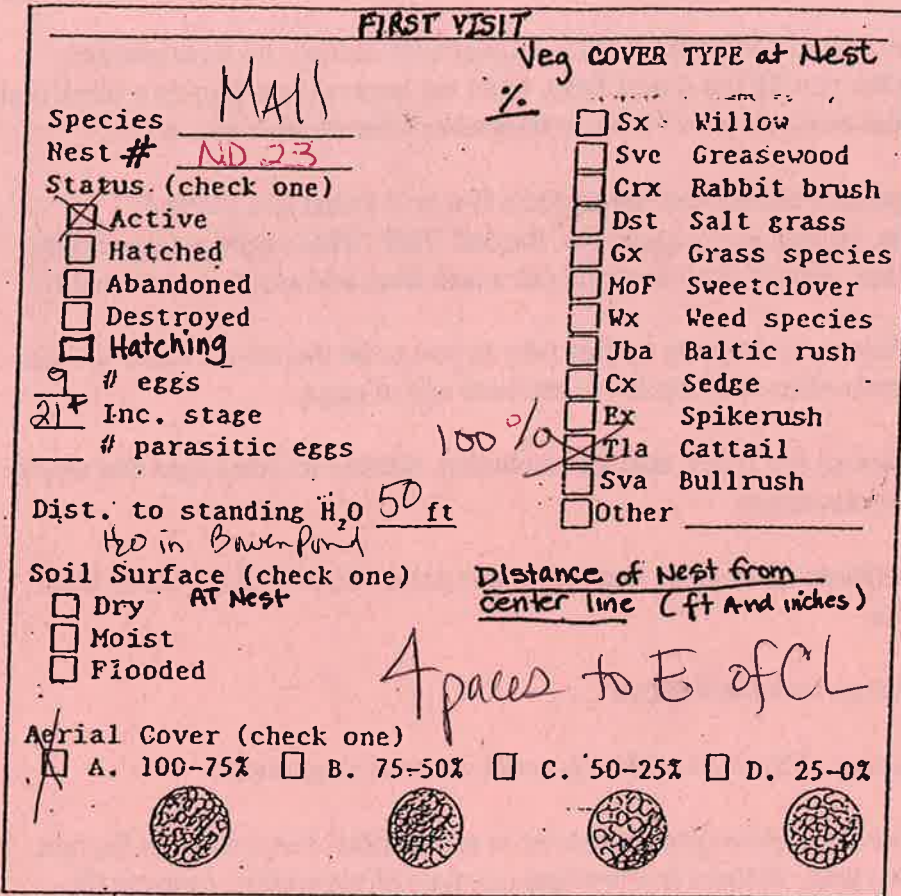 FIRST VISIT
Species Mall
Nest # ND 23
Status (check one)
☒ Active
☐ Hatched
☐ Abandoned
☐ Destroyed
☐ Hatching
9 # eggs
21+ Inc. stage
# parasitic eggs
Dist. to standing H₂O 50 ft
H2O in Bowen Pond
Soil Surface (check one)
AT Nest
☐ Dry
☐ Moist
☐ Flooded
Veg COVER TYPE at Nest
%
☐ Sx Willow
☐ Svc Greasewood
☐ Crx Rabbit brush
☐ Dst Salt grass
☐ Gx Grass species
☐ MoF Sweetclover
☐ Wx Weed species
☐ Jba Baltic rush
☐ Cx Sedge
☐ Ex Spikerush
100% ☒ Tla Cattail
☐ Sva Bullrush
☐ Other
Distance of Nest from
center line (ft And inches)
4 paces to E of CL
Aerial Cover (check one)
☒ A. 100-75% ☐ B. 75-50% ☐ C. 50-25% ☐ D. 25-0%